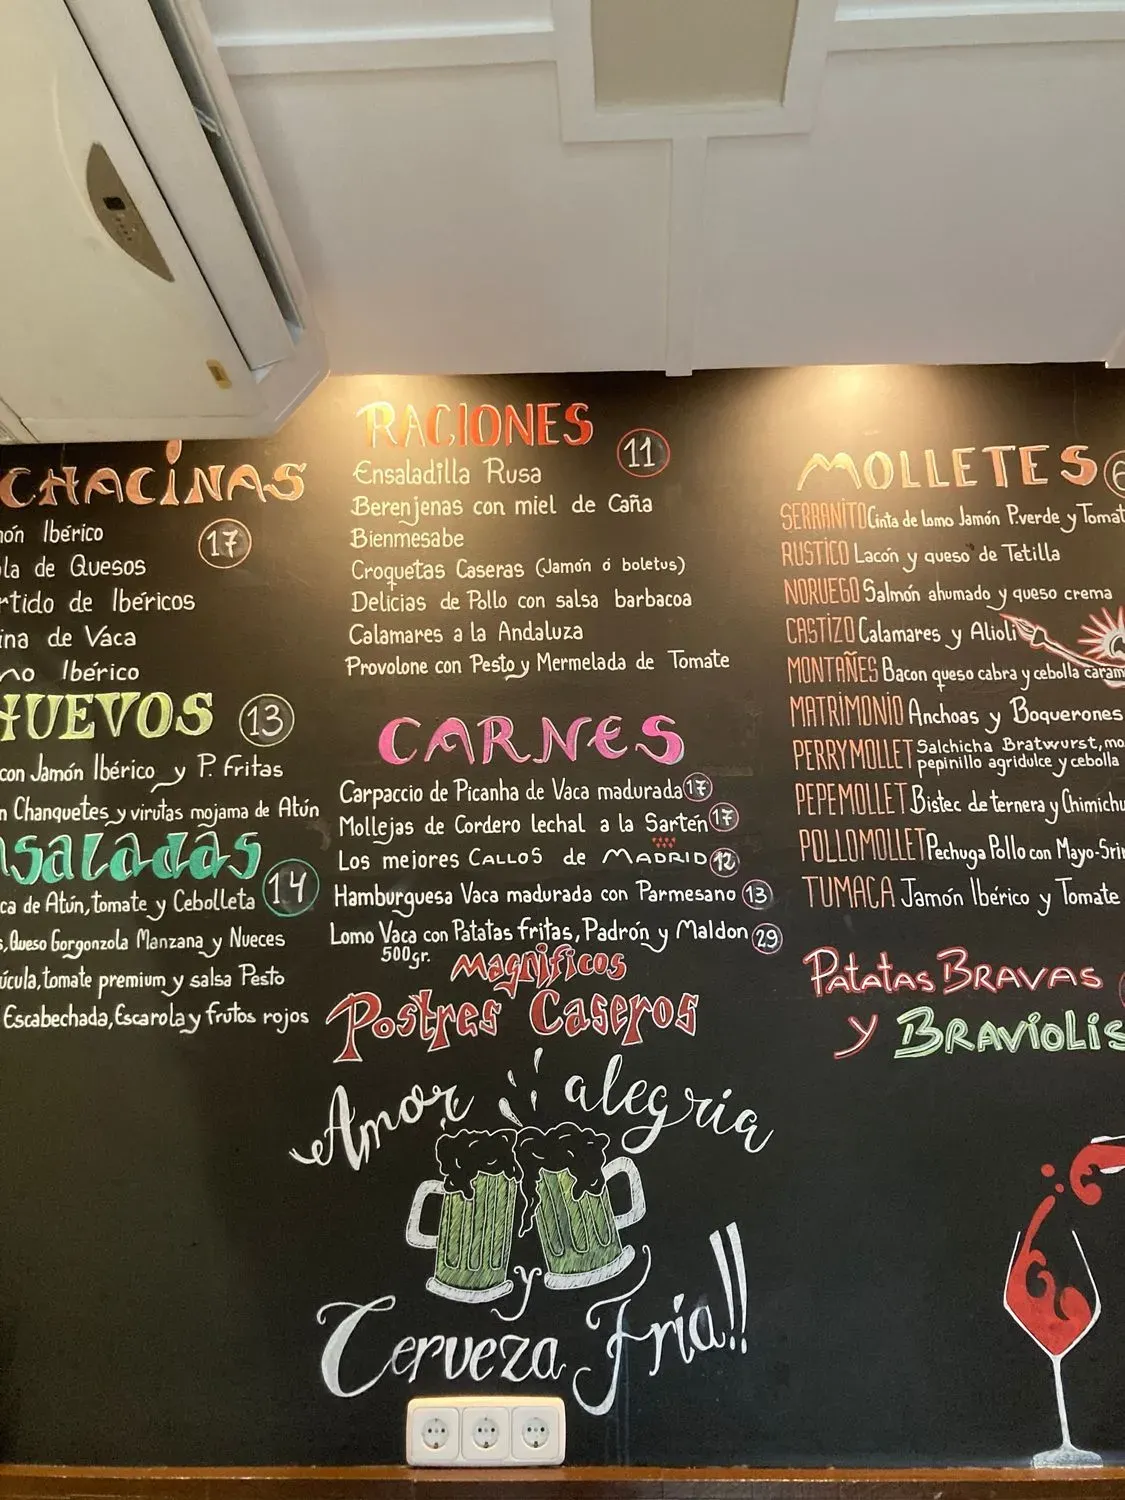 CHACINAS
17
Ibérico
de Quesos
de Ibéricos
de Vaca
Ibérico
HUEVOS 13
con Jamón Ibérico y P. Fritas
Chanquetes y virutas mojama de Atún
14
de Atún, tomate y Cebolleta
Queso Gorgonzola Manzana y Nueces
tomate premium y salsa Pesto
Escabechada, Escarola y frutos rojos
RACIONES
11
Ensaladilla Rusa
Berenjenas con miel de Caña
Bienmesabe
Croquetas Caseras (Jamón ó boletus)
Delicias de Pollo con salsa barbacoa
Calamares a la Andaluza
Provolone con Pesto y Mermelada de Tomate
CARNES
Carpaccio de Picanha de Vaca madurada 17
Mollejas de Cordero lechal a la Sartén 17
Los mejores CALLOS de MADRID 12
Hamburguesa Vaca madurada con Parmesano 13
Lomo Vaca con Patatas fritas, Padrón y Maldon 29
500gr.
Magníficos
Postres Caseros
Amor alegría
y
Cerveza Fría!!
MOLLETES
SERRANITO Cinta de lomo Jamón P.verde y Tomat
RUSTICO Lacón y queso de Tetilla
NORUEGO Salmón ahumado y queso crema
CASTIZO Calamares y Alioli
MONTAÑES Bacon queso cabra y cebolla caram
MATRIMONIO Anchoas y Boquerones
PERRYMOLLET Salchicha Bratwurst, mo
pepinillo agridulce y cebolla
PEPEMOLLET Bistec de ternera y Chimichu
POLLOMOLLET Pechuga Pollo con Mayo-Srir
TUMACA Jamón Ibérico y Tomate
PATATAS BRAVAS
y BRAVIOLIS